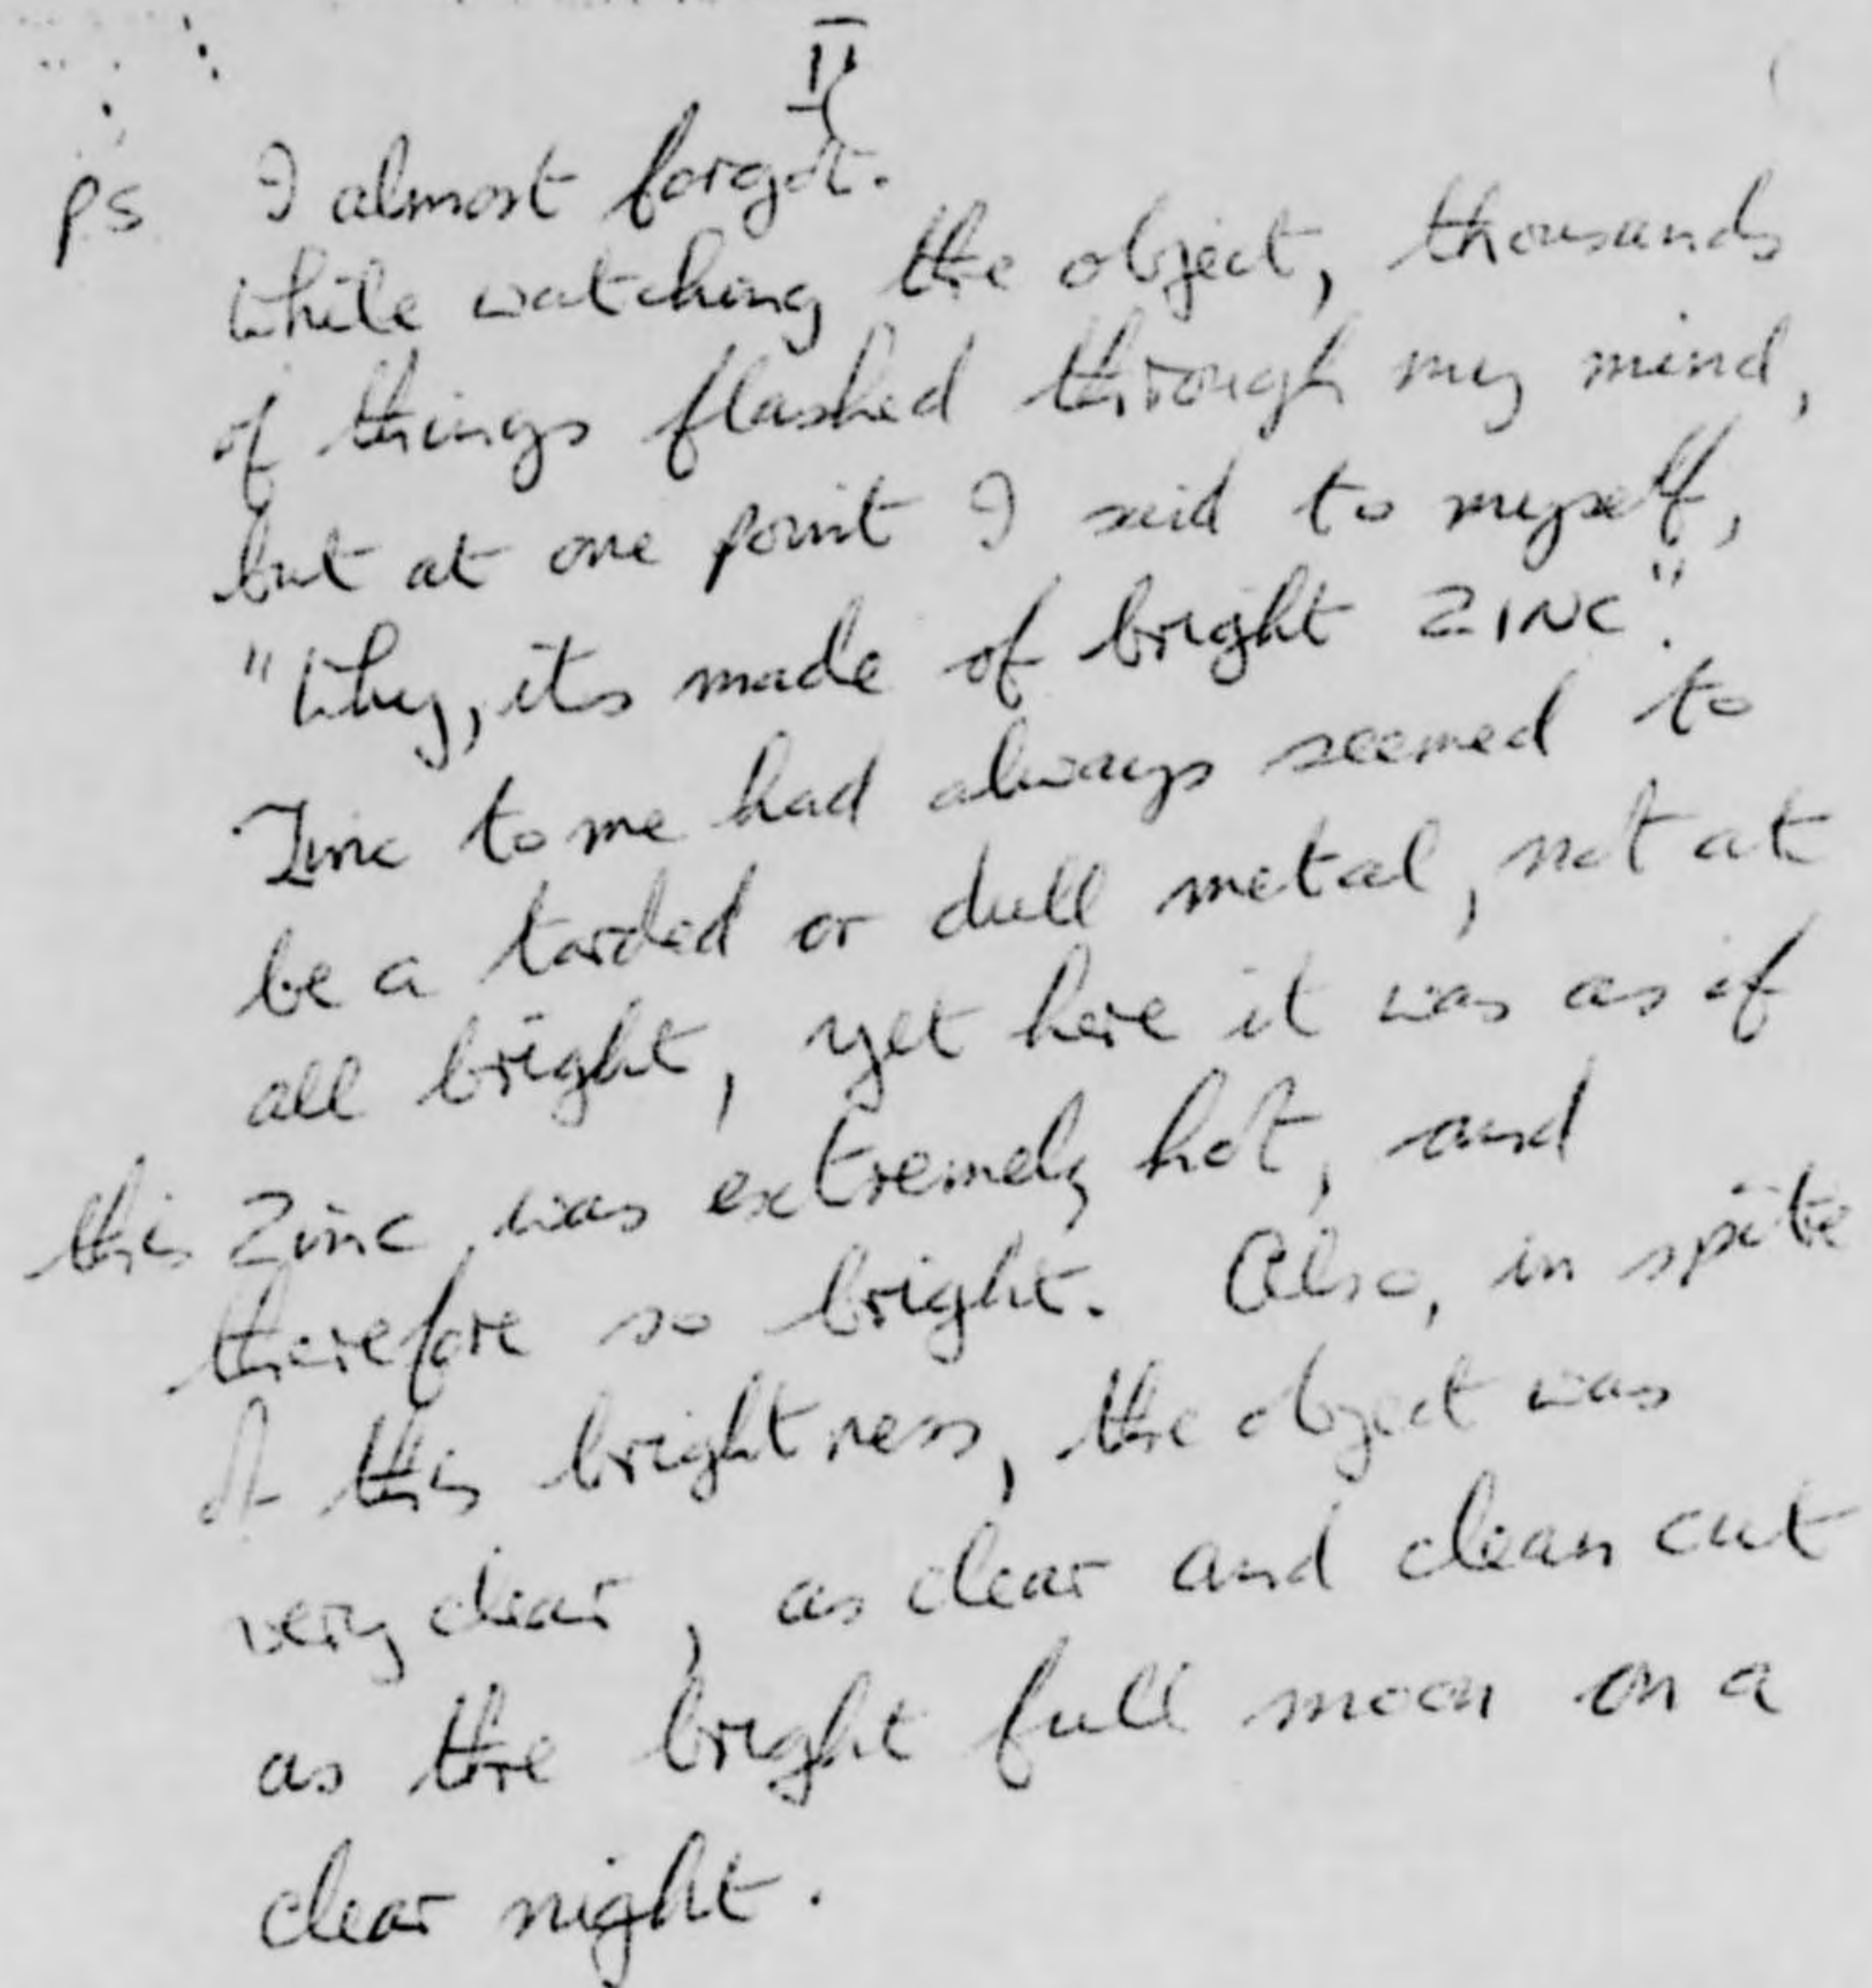 II
PS I almost forgot.
While watching the object, thousands
of things flashed through my mind,
but at one point I said to myself,
"Why, its made of bright ZINC".
Zinc to me had always seemed to
be a tarded or dull metal, not at
all bright, yet here it was as if
this Zinc was extremely hot, and
therefore so bright. Also, in spite
of this brightness, the object was
very clear, as clear and clean cut
as the bright full moon on a
clear night.